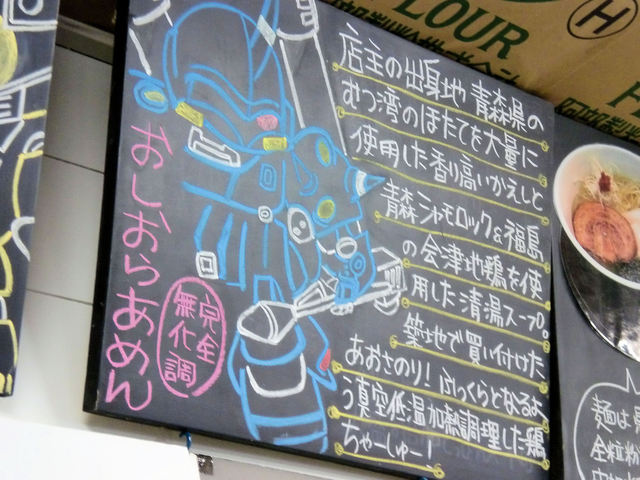 おしおらあめん
完全
無化調
店主の出身地 青森県の
むつ湾のほたてを大量に
使用した香り高いかえしと
青森シャモロック&福島
の会津地鶏を使
用した清湯スープ。
築地で買い付けた
あおさのり!ふっくらとなるよ
う真空低温加熱調理した鶏
ちゃーしゅー!
LOUR
H
麺は
全粒粉